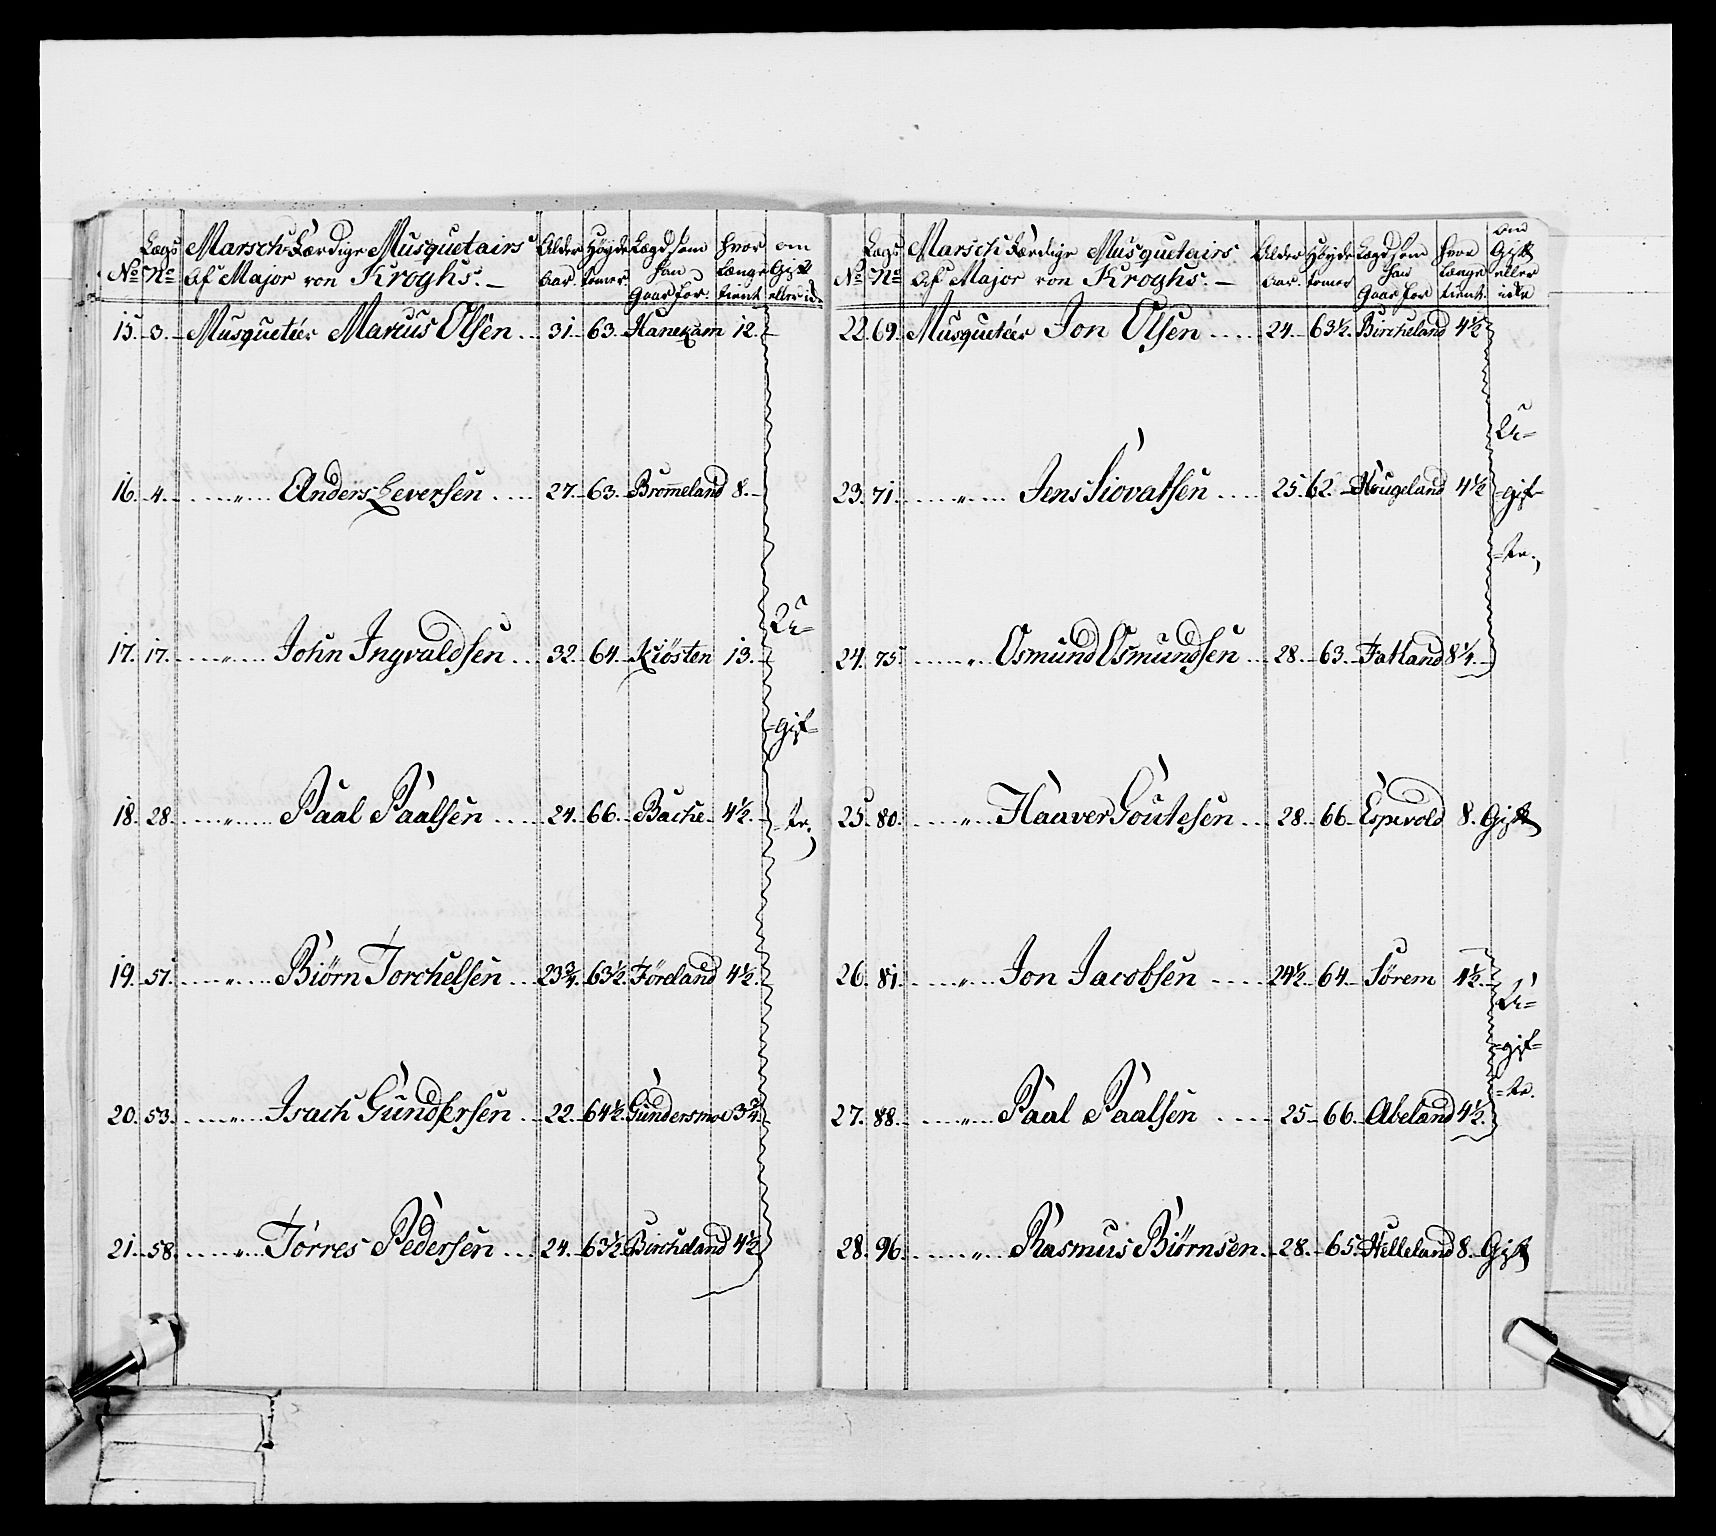 No Lægs No Marsch-færdige Musquetairs Af Major von Kroghs. Alder Aar. Høyde tomer. Lægd som han Gaar for. hvor længe tient om Gift eller ick
15. 3. Musqueteer Marcus Olsen 31. 63. Hanekam 12.
16. 4. " Anders Seversen 27. 63. Bromeland 8.
17. 17. " John Ingvaldsen 32. 64. Kiösten 13.
18. 28. " Paal Paalsen 24. 66. Bache 4½.
19. 51. " Biörn Torchelsen 23¾. 63½. Föreland 4½.
20. 53. " Isach Gundersen 22. 64½. Gundersmoe 3¾.
21. 58. " Torres Pedersen 24. 63½. Bircheland 4½.
U=
=gif=
=te.
No Lægs No Marsch færdige Musquetairs Af Major von Kroghs. Alder Aar. Høyde tomer Lægd som han Gaar for hvor længe tient. om Gift eller icke
22. 69. Musqueteer Jon Olsen 24. 63½. Bircheland 4½
23. 71. " Jens Siovatsen 25. 62. Hougeland 4½
24. 75 " Osmund Osmundsen 28. 63. Fatland 8¼.
U=
=gif=
=te.
25. 80. " Haaver Goutesen 28. 66. Espevold 8. Gift
26. 81. " Jon Jacobsen 24½. 64. Sörem 4½.
27. 88. " Paal Paalsen 25. 66. Abeland 4½.
U=
=gif=
=te.
28. 96. " Rasmus Biörnsen 28. 65. Helleland 8. Gift